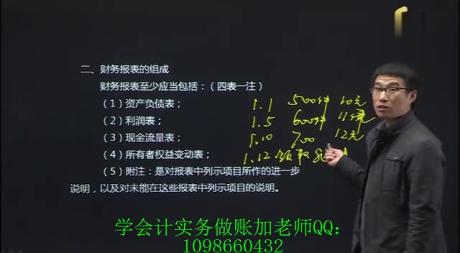 二、财务报表的组成
财务报表至少应当包括：（四表一注）
（1）资产负债表；
（2）利润表；
（3）现金流量表；
（4）所有者权益变动表；
（5）附注：是对报表中列示项目所作的进一步
说明，以及对未能在这些报表中列示项目的说明。
1.1 500件 10元
1.5 600件 11元
1.10 700 12元
1.12 领取
学会计实务做账加老师QQ：
1098660432